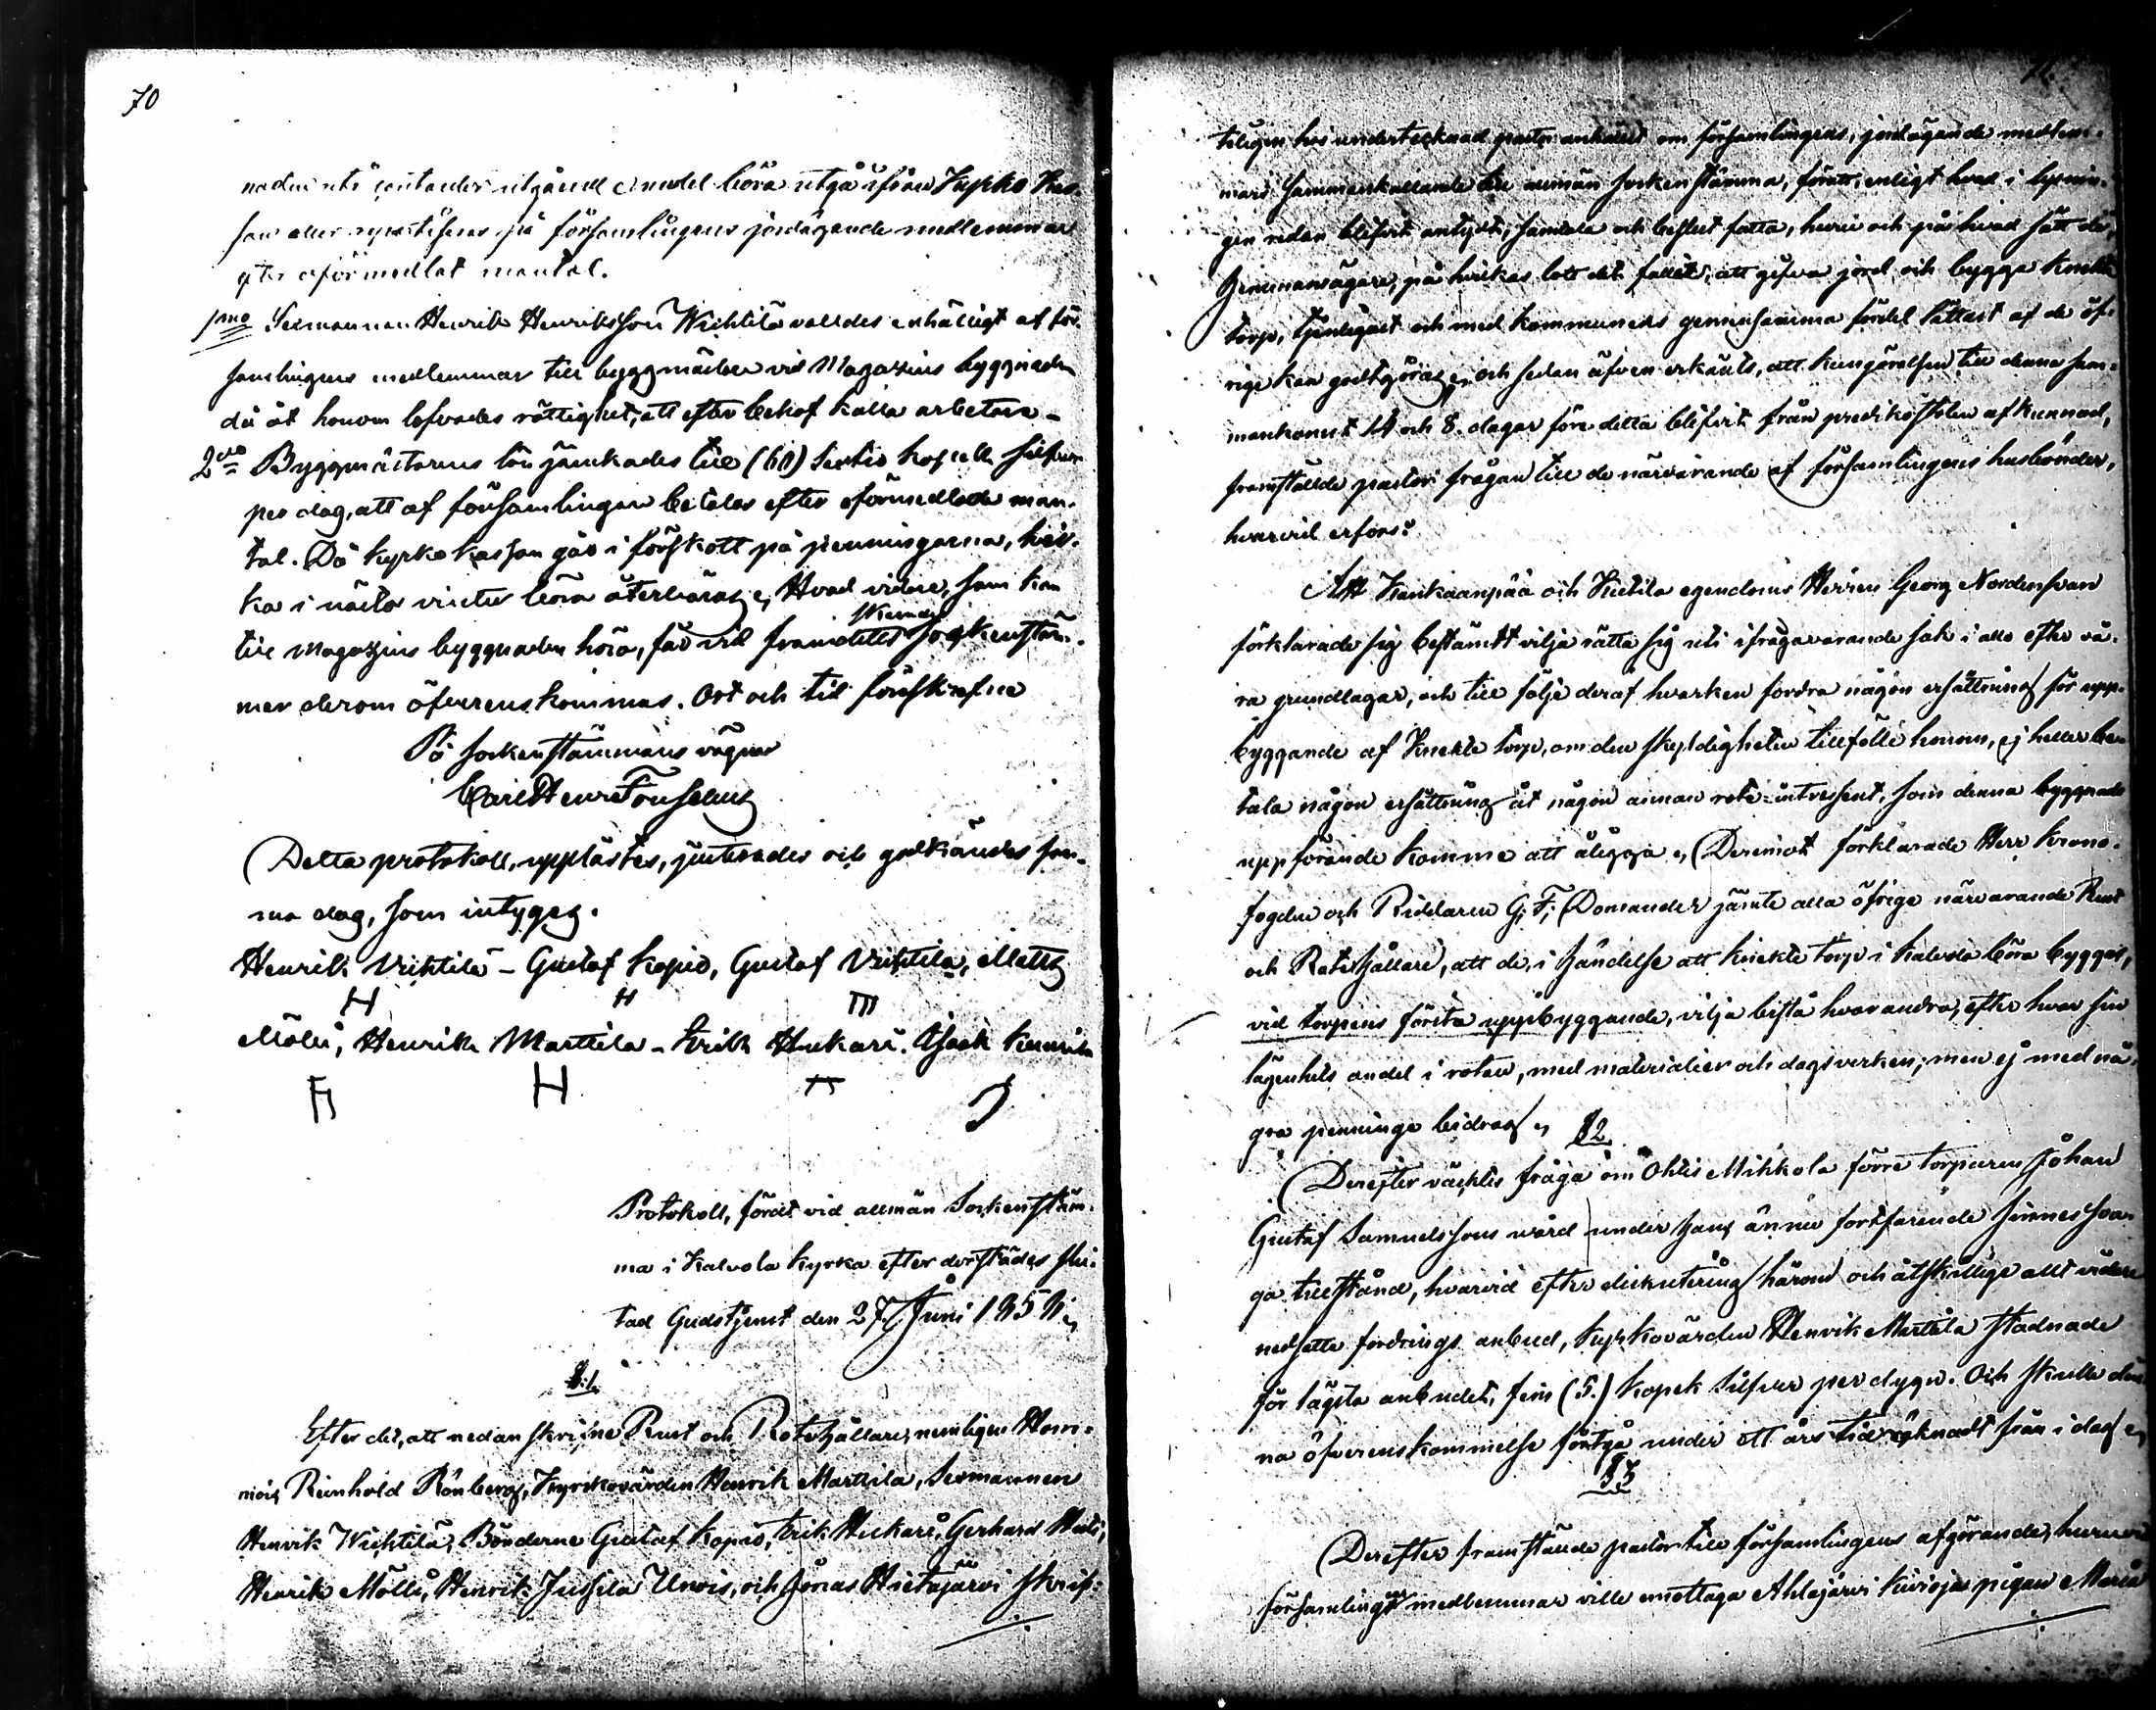 70
naden uti contanter utgående medel böra utgå ifrån Kyrko Kas-
san eller repartiseras på församlingens jordägande medlemmar
efter oförmedlat mantal.
1mo Sexmannen Henrik Henriksson Wichtilä valdes enhälligt af för-
samlingens medlemmar till byggmästare vid Magazins byggnaden
då åt honom lofvades rättighet, att efter behof kalla arbetare -
2do Byggmästarens lön jämkades till (60) Sextio kopek silfver
per dag, att af församlingen betalas efter oförmedlade man-
tal. Då kyrko kassan går i förskott på penningarna, hvil-
ka i nästa vinter böra återbäras. Hvad vidare, som kan
till Magazins byggnaden höra, får vid framdeles skeende sockenstäm-
mer derom öfverenskommas. Ort och tid förskrifne
På sockenstämmans vägnar
Carl Henr Fonselius
Detta protokoll, upplästes, justerades och godkändes sam-
ma dag, som intygas.
Henrik Vichtilä - Gustaf Kopio, Gustaf Vichtilä, Matts
H H M
Möllä, Henrik Marttila - Erik Huckari. Isaak
H H
Protokoll, fördt vid allmän Sockenstäm-
ma i Kalvola Kyrka efter derstädes slu-
tad Gudstjenst den 27 Juni 1858
§ 1.
Efter det, att nedanskrifne Rust och Rotehållare, nemligen Herr
Reinhold Rönberg, Kyrkovärden Henrik Marttila, Sexmannen
Henrik Wichtilä, Bönderne Gustaf Kopio, Erik Huckari, Gerhard
Henrik Möllä, Henrik Jussila Unois, och Jonas Hietajärvi skrift-
71.
teligen hos undertecknad pastor anhållit om församlingens, jordägande medlem-
mars sammankallande till allmän sockenstämma, föratt, enligt hvad i lysnin-
gen redan blifvit antydt, samtala och beslut fatta, huru och på hvad sätt de,
Hemmansägare, på hvilkas lott det fallit, att gifva jord och bygga knekte
torp, tjenligast och med kommunens gemensamma fördel lättast af de öf-
rige kan godtgöras, och sedan äfven erkänts, att kungörelsen till denna sam-
mankomst 14 och 8. dagar före detta blifvit från predikostolen afkunnad,
framställde pastor frågan till de närvarande af församlingens husbönder,
hvarvid erfors:
Att Kankaanpää och Kutila egendoms Herren Georg Nordenswan
förklarade sig bestämdt vilja rätta sig uti ifrågavarande sak i allo efter vå-
ra grundlagar, och till följe deraf hvarken fordra någon ersättning för upp-
byggande af Knekte torp, om den skyldigheten tillfölle honom, ej heller be-
tala någon ersättning åt någon annan rote-intressent, som denna byggnads
uppförande komme att åligga. Deremot förklarade Herr Krono-
fogden och Riddaren G. F. Domander jämte alla öfrige närvarande Rust
och Rotehållare, att de, i händelse att knekte torp i Kalvola böra byggas,
vid torpens första uppbyggande, vilja bistå hvarandra, efter hvar sin
lägenhets andel i roten, med materialier och dagsverken; men ej med nå-
gra penninge bidrag.
§ 2.
Derefter väcktes fråga om Ohtis Mikkola förre torparen Johan
Gustaf Samuelssons vård under hans ännu fortfarande sinnessva-
ga tillstånd, hvarvid efter diskutering härom och åtskillige allt vidare
nedsatte fordrings anbud, kyrkovärden Henrik Marttila stadnade
för lägsta anbudet, fem (5.) kopek silfver per dygn. Och skulle den-
na öfverenskommelse fortgå under ett års tid räknadt från i dag
§ 3
Derefter framställde pastor till församlingens afgörande, huruvida
församlingens medlemmar ville emottaga Ahlajärvi Kivioja pigan Maria